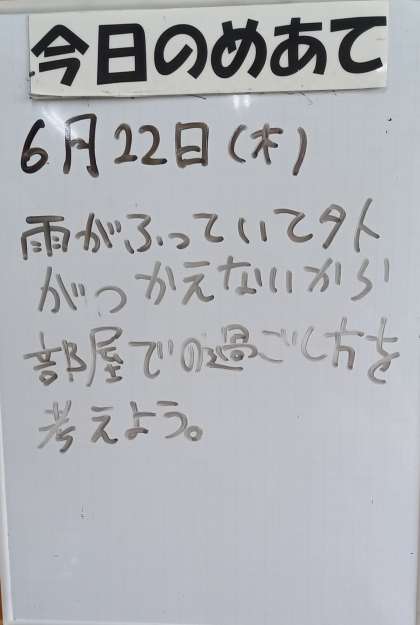 今日のめあて
6月22日(木)
雨がふっていて外
がつかえないから
部屋での過ごし方を
考えよう。